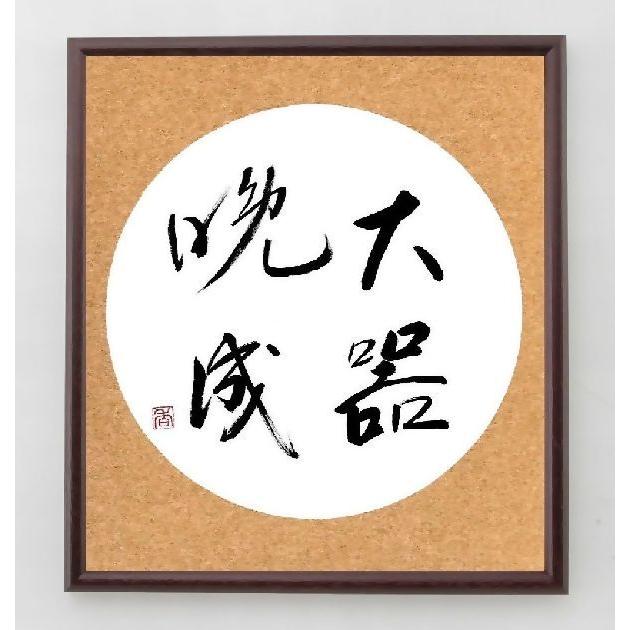 大器
晩成